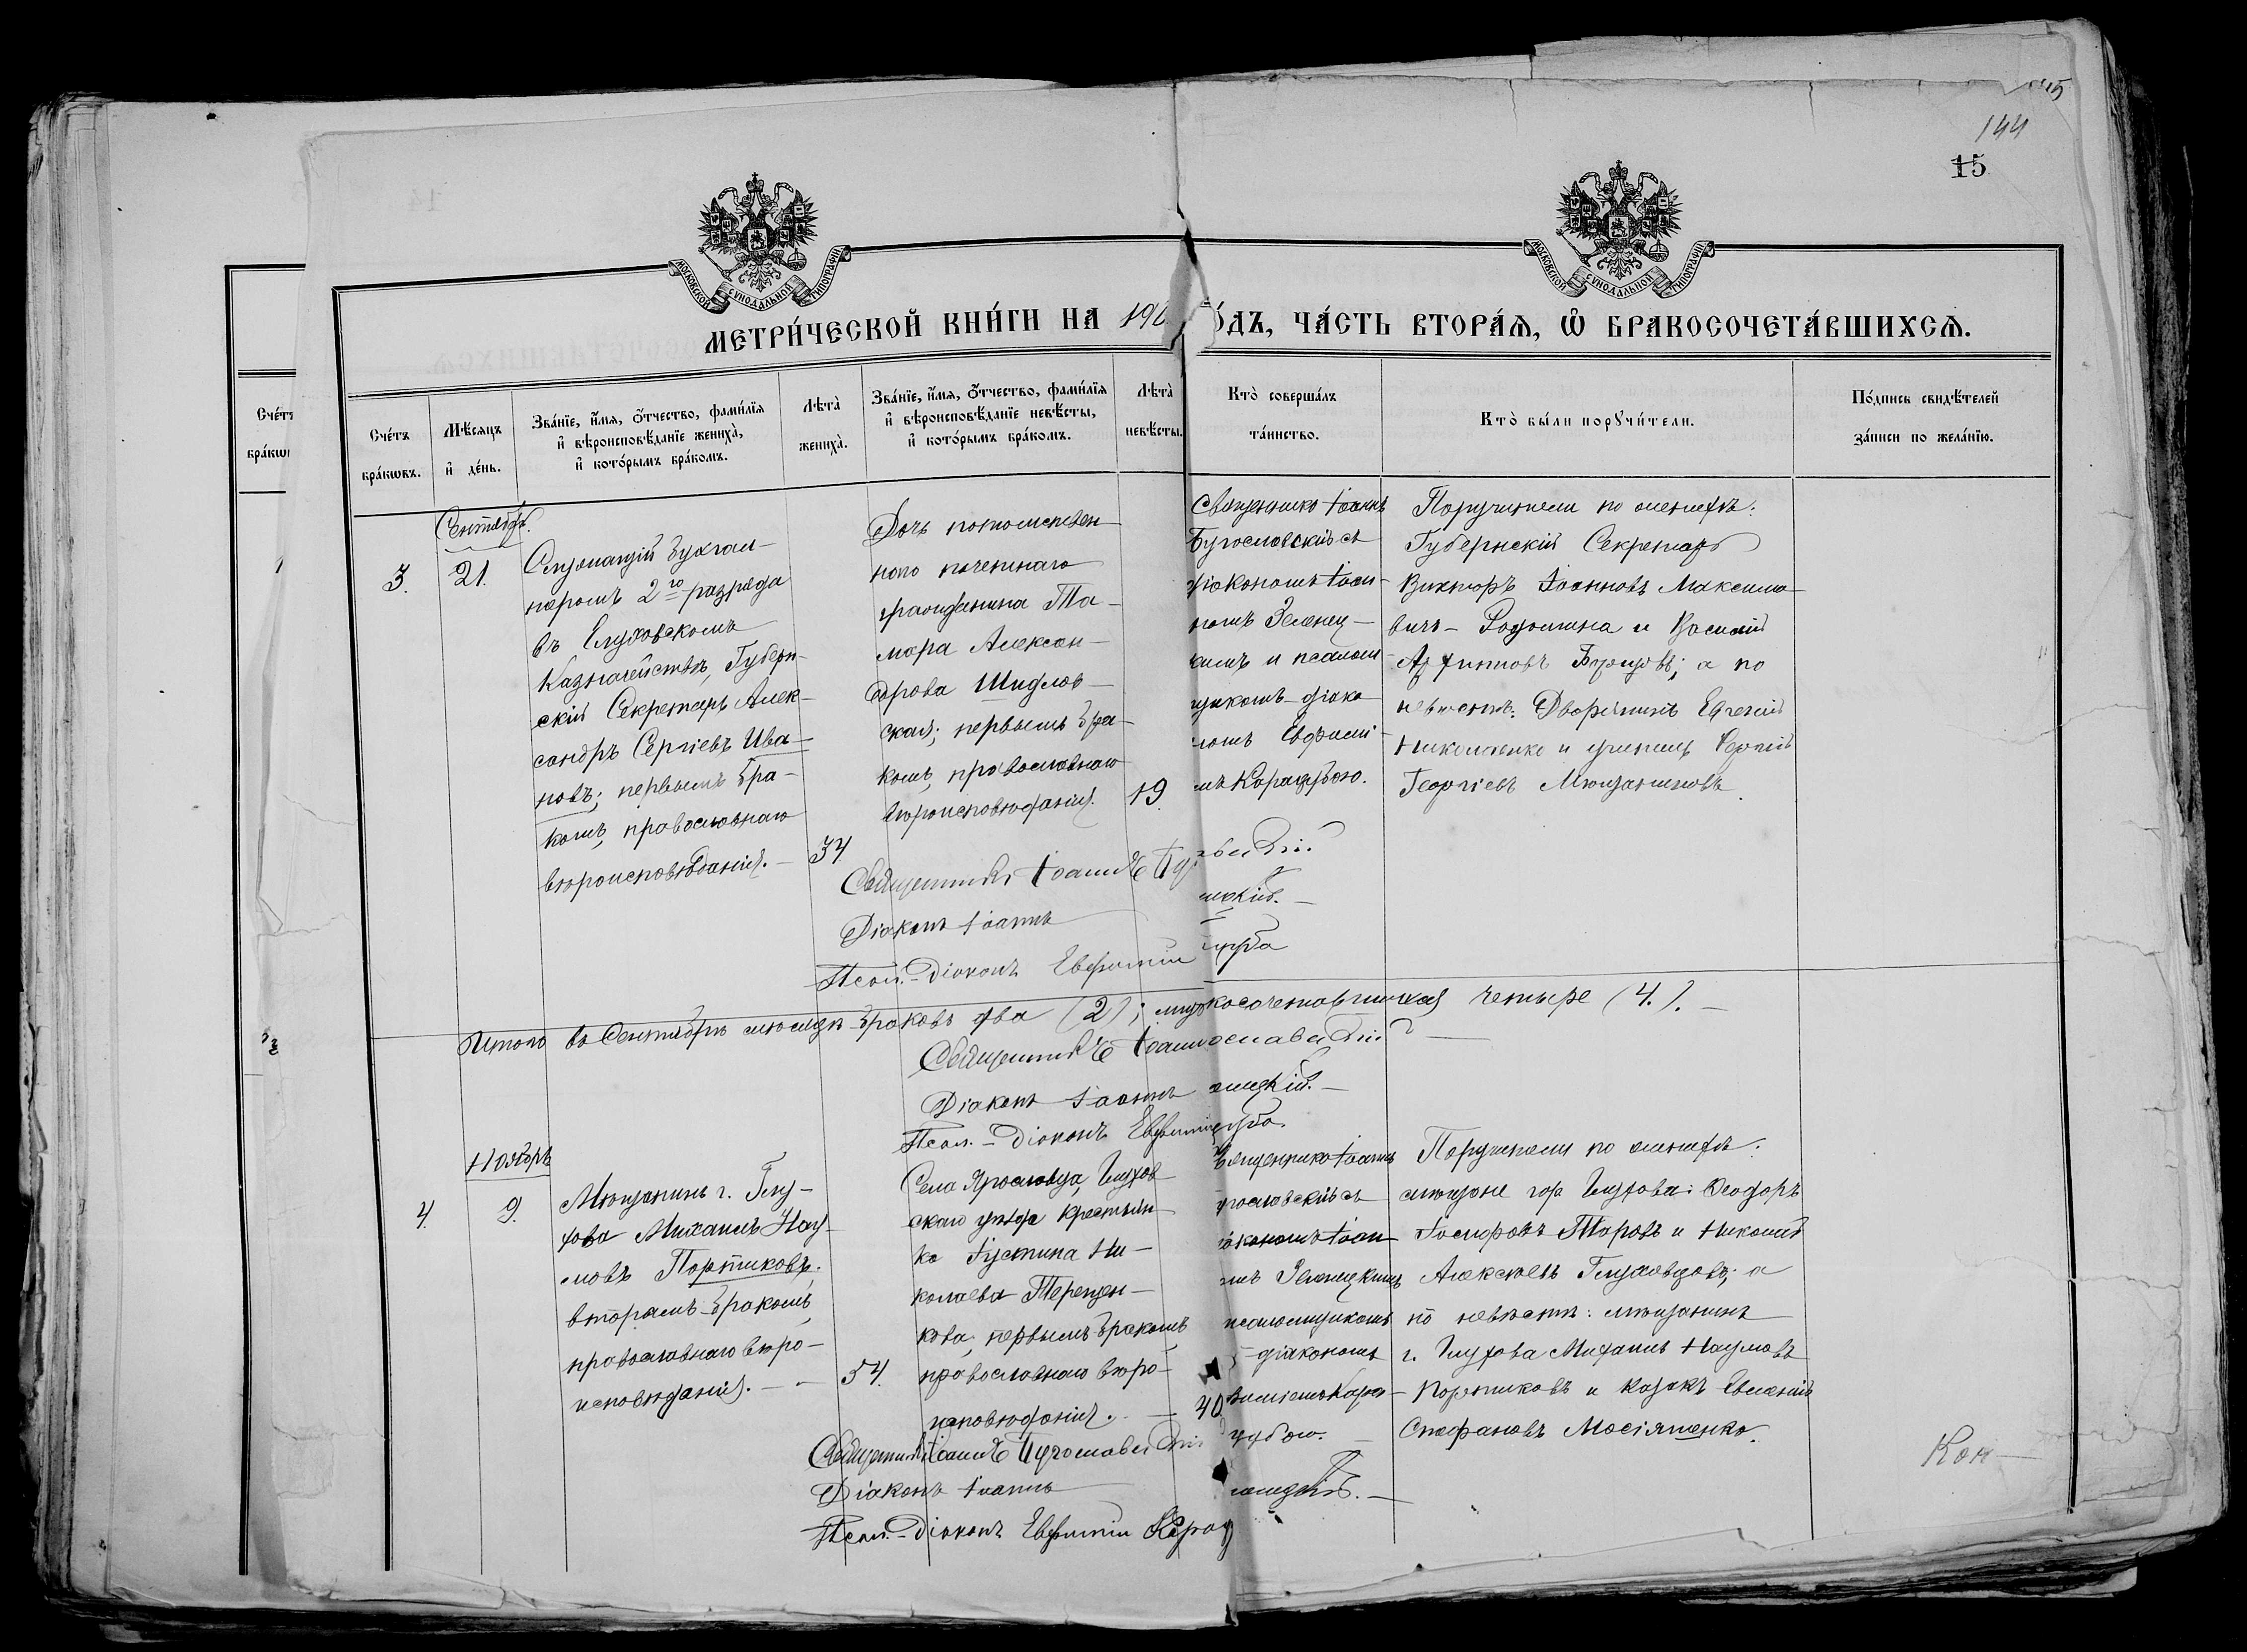 144
15
МОСКОВСКОЙ СѴНОДАЛЬНОЙ ТИПОГРАФІИ
МОСКОВСКОЙ СѴНОДАЛЬНОЙ ТИПОГРАФІИ
МЕТРИ́ЧЕСКОЙ КНИ́ГИ НА 190
ОДЪ, ЧА́СТЬ ВТОРА́Ѧ, Ѽ БРАКОСОЧЕТА́ВШИХСѦ.
Сче́тъ
бра́кѡвъ.
Мѣ́сяцъ
и҆ де́нь.
Зва́нїе, и҆́мя, ѻ҆́тчество, фами́лїя
и҆ вѣроисповѣ́данїе жениха̀,
и҆ кото́рымъ бра́комъ.
Лѣта̀
жениха̀.
Зва́нїе, и҆́мя, ѻ҆́тчество, фами́лїя
и҆ вѣроисповѣ́данїе невѣ́сты,
и҆ кото́рымъ бра́комъ.
Лѣта̀
невѣ́сты.
Кто̀ соверша́лъ
та́инство.
Кто̀ бы́ли порꙋчи́тели.
По́дпись свидѣ́телей
за́писи по жела́нїю.
Сентябрь.
3.
21.
Служащій бухгал-
теромъ 2го разряда
въ Глуховскомъ
Казначействѣ, Губерн-
скій Секретарь Алек-
сандръ Сергіевъ Ива-
новъ; первымъ бра-
комъ, православнаго
вѣроисповѣданія. —
34
Дочь потомствен-
наго почетнаго
гражданина Та-
мара Алексан-
дрова Шидлов-
ская; первымъ бра-
комъ, православнаго
вѣроисповѣданія.
19.
Священникъ Іоаннъ
Бугославскій съ
діакономъ Іоан-
номъ Зеленец-
кимъ и псалом-
щикомъ-діако
номъ Евфимі-
мъ Карацубою.
Поручители по женихѣ:
Губернскій Секретарь
Викторъ Іоанновъ Максимо-
вичъ- и Василій
а по
невѣстѣ: Дворянинъ Евгеній
и учитель Сергій
Георгіевъ Мѣщаниновъ.
Священникъ Іоаннъ
Діаконъ Іоаннъ
Псал.-Діаконъ Евфимій
Итого въ Сентябрѣ мѣсяцѣ браковъ два (2);
косочетавшихся четыре (4.). —
Священникъ Іоанн
Діаконъ Іоаннъ
Псал. - Діаконъ Евфимі
Ноябрь
4.
9.
Мѣщанинъ г. Глу-
хова Михаилъ Нау-
мовъ Портниковъ;
вторымъ бракомъ,
православнаго вѣро-
исповѣданія. —
54.
Села Ярославца, Глухов-
скаго уѣзда крестьян-
ка Іустина Ни-
колаева Терещен-
кова, первымъ бракомъ,
православнаго вѣро-
исповѣданія. —
40.
Священникъ Іоаннъ
гославскій съ
іакономъ Іоан-
мъ Зеленецкимъ
псаломщикомъ
- діакономъ
фиміемъ Кара-
цубою.
Поручители по женихѣ:
мѣщане гор Глухова: Ѳеодоръ
Іосифовъ Таровъ и Николай
Алексѣевъ Глуховцовъ; а
по невѣстѣ: мѣщанинъ
г. Глухова Михаилъ Наумовъ
Портниковъ и казакъ Евгеній
Стефановъ Мосіяченко.
Священникъ Іоаннъ Бугославскій
Діаконъ Іоаннъ
Псал.-Діаконъ Евфимій Карац
Кон—